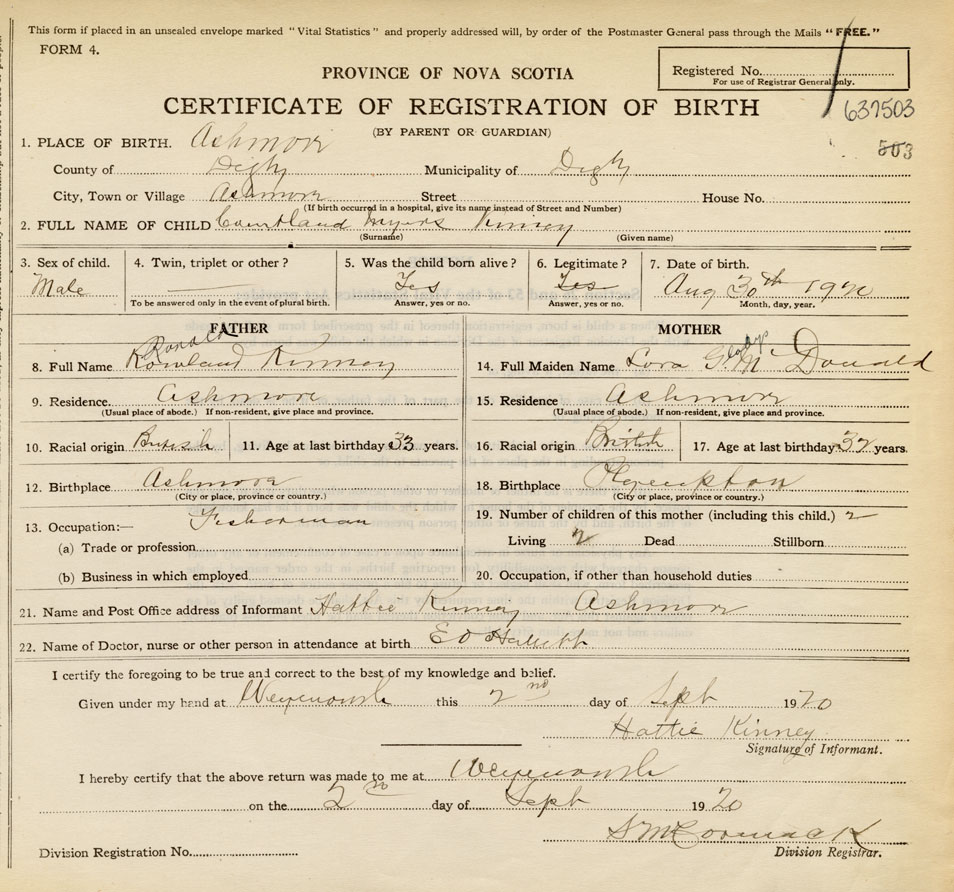 This form if placed in an unsealed envelope marked "Vital Statistics" and properly addressed will, by order of the Postmaster General pass through the Mails "FREE."
FORM 4.
Registered No.
For use of Registrar General only.
PROVINCE OF NOVA SCOTIA
CERTIFICATE OF REGISTRATION OF BIRTH
637503
(BY PARENT OR GUARDIAN)
503
1. PLACE OF BIRTH. Ashmore
County of Digby Municipality of Digby
City, Town or Village Ashmore Street House No.
(If birth occurred in a hospital, give its name instead of Street and Number)
2. FULL NAME OF CHILD Courtland Myers Kinney
(Surname) (Given name)
3. Sex of child. 4. Twin, triplet or other? 5. Was the child born alive? 6. Legitimate? 7. Date of birth.
Male Yes Yes Aug 30th 1920
To be answered only in the event of plural birth. Answer, yes or no. Answer, yes or no. Month, day, year.
FATHER MOTHER
Ronald Gladys
8. Full Name Rowland Kinney 14. Full Maiden Name Lora G. Mc Donald
9. Residence. Ashmore 15. Residence Ashmore
(Usual place of abode.) If non-resident, give place and province. (Usual place of abode.) If non-resident, give place and province.
10. Racial origin British 11. Age at last birthday 33 years. 16. Racial origin British 17. Age at last birthday 32 years.
12. Birthplace Ashmore 18. Birthplace Plympton
(City or place, province or country.) (City or place, province or country.)
13. Occupation:— Fisherman 19. Number of children of this mother (including this child.) 2
(a) Trade or profession Living 2 Dead Stillborn
(b) Business in which employed 20. Occupation, if other than household duties
21. Name and Post Office address of Informant Hattie Kinney Ashmore
22. Name of Doctor, nurse or other person in attendance at birth E D
I certify the foregoing to be true and correct to the best of my knowledge and belief.
Given under my hand at Weymouth this 2nd day of Sept 1920
Hattie Kinney
Signature of Informant.
I hereby certify that the above return was made to me at Weymouth
on the 2nd day of Sept 1920
S McCormack
Division Registration No. Division Registrar.